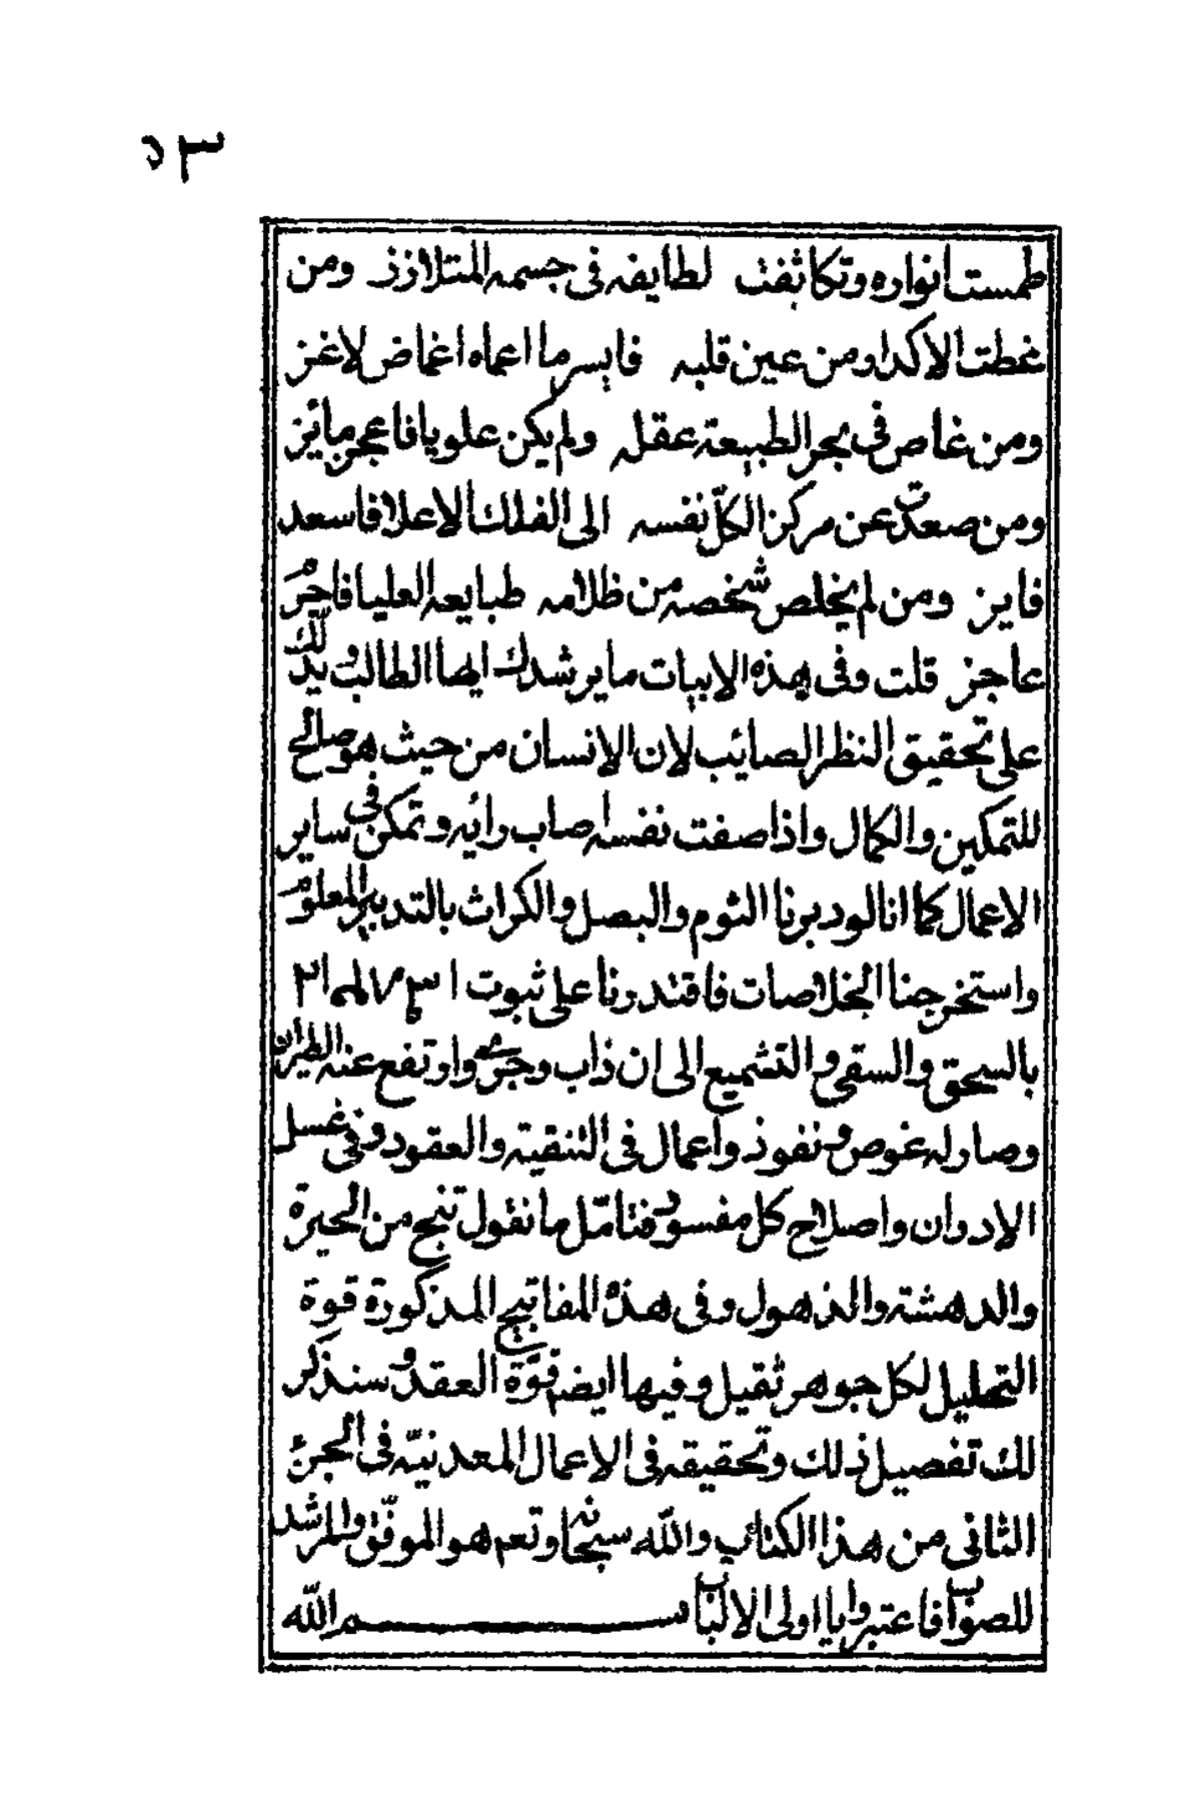 ٥٣
طمست انواره وتكاثفت لطايفه فى جسمه المتلازز ومن
غطت الاكدار من عين قلبه فايسر ما اعماه اغماض لاغز
ومن غاص فى بحر الطبيعة عقله ولم يكن علويا فاعجز مائز
ومن صعدت عن مركز الكلّ نفسه الى الفلك الاعلا فاسعد
فايز ومن لم يخلص شخصه من ظلامه طبايعه العليا فاحر
عاجز قلت وفى هذه الابيات ما يرشدك ايها الطالب ويدلّك
على تحقيق النظر الصايب لان الانسان من حيث هو صالح
للتمكين والكمال واذا صفت نفسه اصاب رائيه وتمكن فى ساير
الاعمال كما انا لو دبرنا الثوم والبصل والكراث بالتدبير المعلوم
واستخرجنا الخلاصات فاقتدرنا على ثبوت
بالسحق والسقى والتشميع الى ان ذاب وجرى وارتفع عنه الطيران
وصار له غوص ونفوذ واعمال فى التنقية والعقود وفى غسل
الادران واصلاح كل مفسود فتامّل ما نقول تنج من الحيرة
والدهشة والذهول وفى هذه المفاتيح المذكورة قوة
التحليل لكل جوهر ثقيل وفيها ايضا قوّة العقد وسنذكر
لك تفصيل ذلك وتحقيقه فى الاعمال المعدنيّة فى الجزء
الثانى من هذا الكتاب والله سبحانه وتعم هو الموفّق والمرشد
للصواب فاعتبروا يا اولى الالباب بسم الله